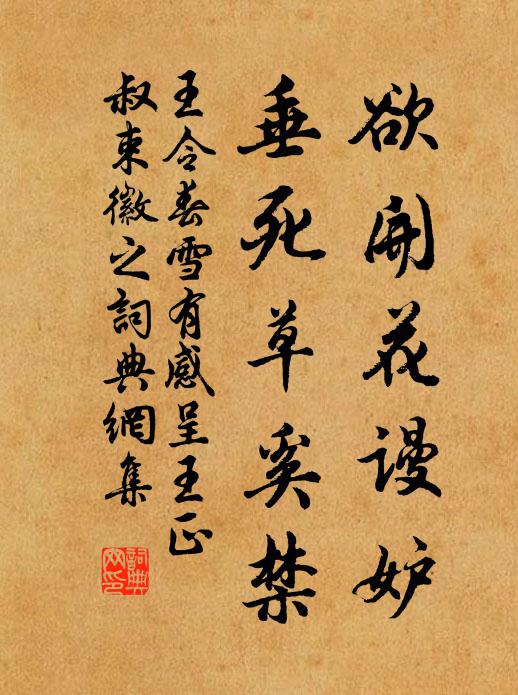 欲開花謾妒
垂死草奚禁
王令春雪有感呈王正
叔束徽之詞典網集
詞典網印